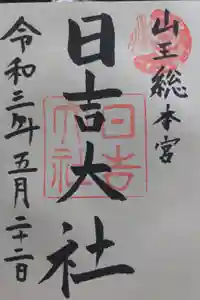 山王総本宮
日吉大社
令和三年五月二十二日
日吉大社